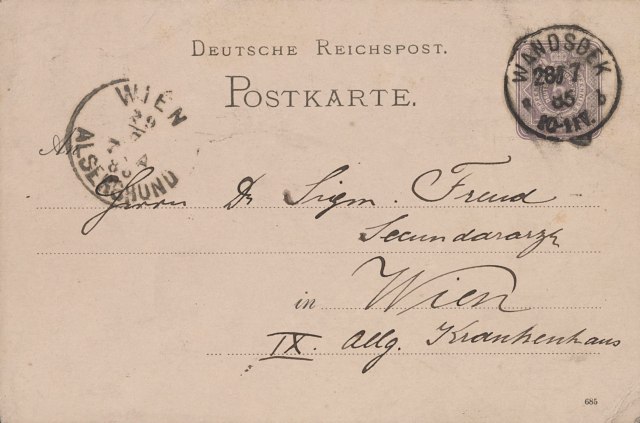 DEUTSCHE REICHSPOST.
POSTKARTE.
WANDSBEK
28/7
85
10-11V.
WIEN
ALSERGRUND
An
Herrn Dr Sigm. Freud
Secundararzt
in Wien
IX. Allg. Krankenhaus
685